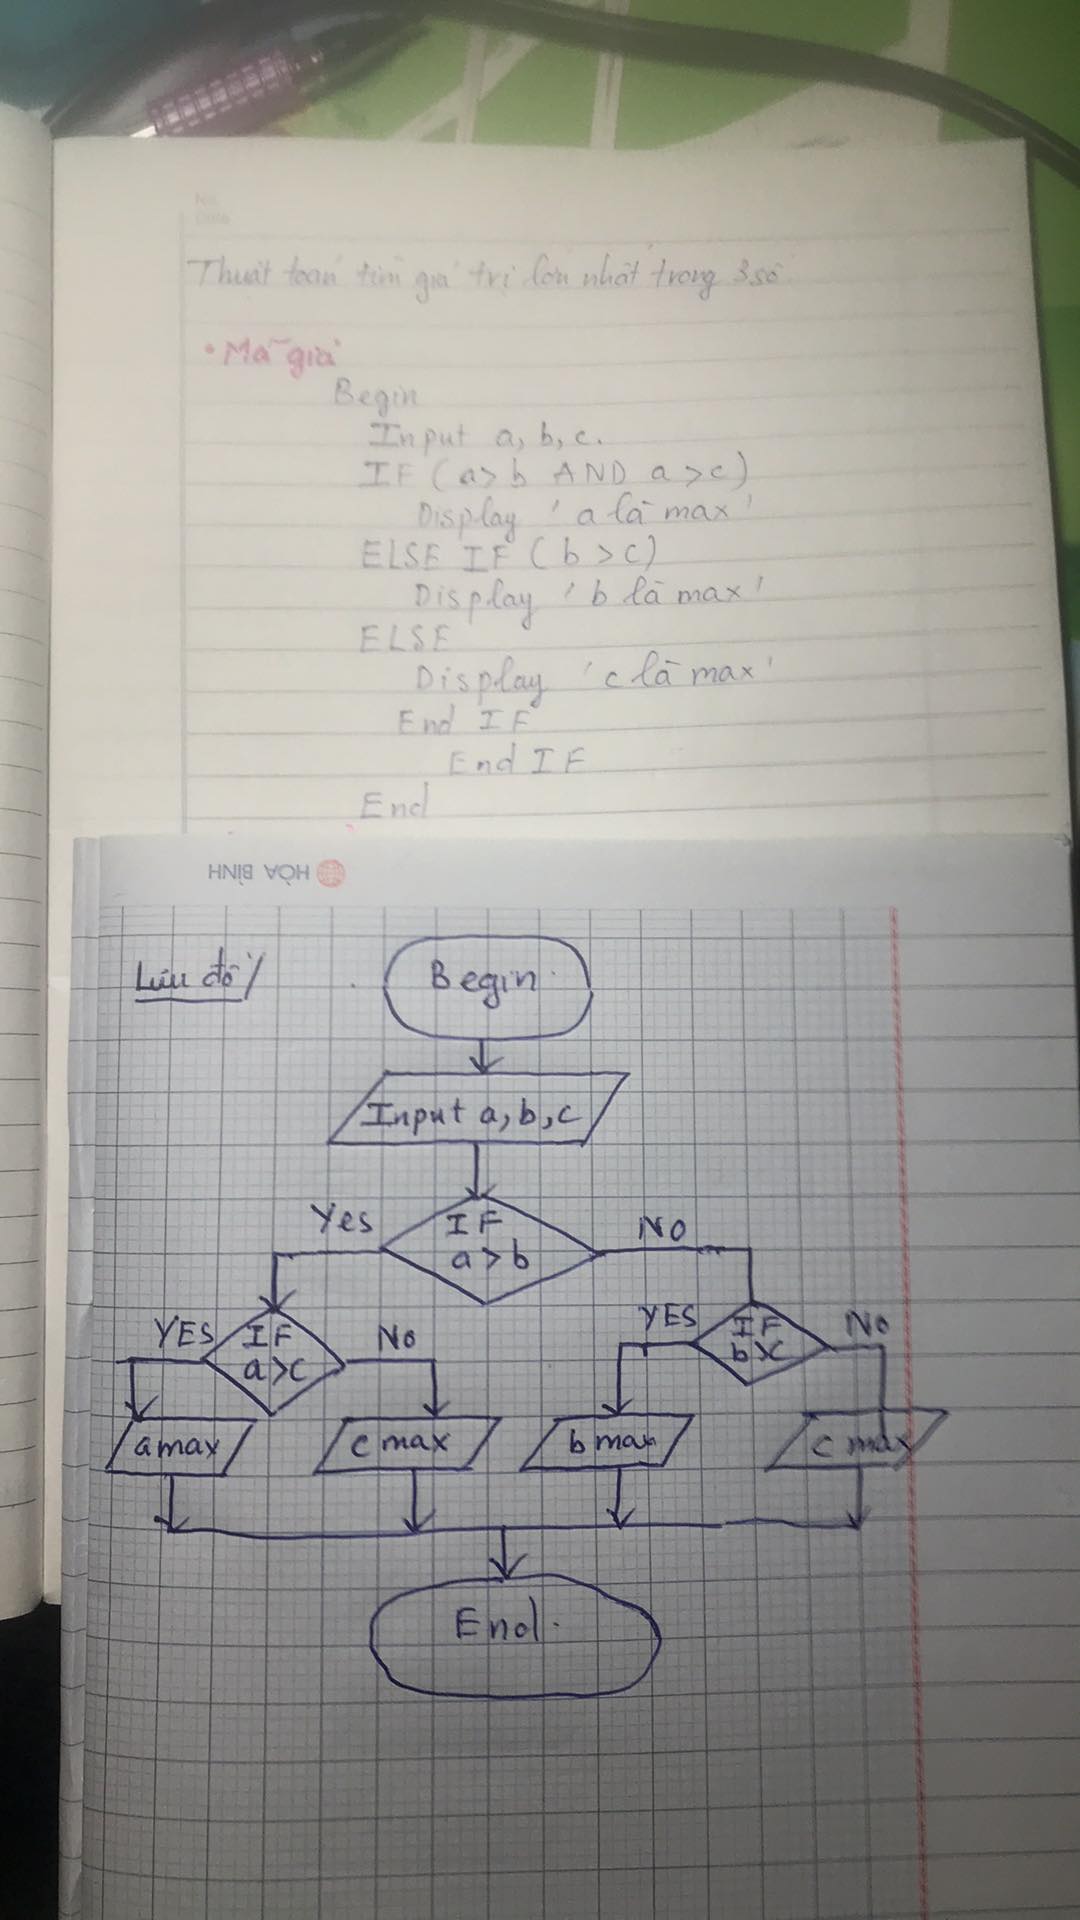 No.
Date
Thuật toán tìm giá trị lớn nhất trong 3 số.
• Mã giả
Begin
Input a, b, c.
IF (a > b AND a > c)
Display 'a là max'
ELSE IF (b > c)
Display 'b là max'
ELSE
Display 'c là max'
End IF
End IF
End
HÒA BÌNH
Lưu đồ/
Begin
Input a, b, c
Yes
IF
a > b
NO
YES
IF
a > c
NO
YES
IF
b > c
NO
a max
c max
b max
c max
End